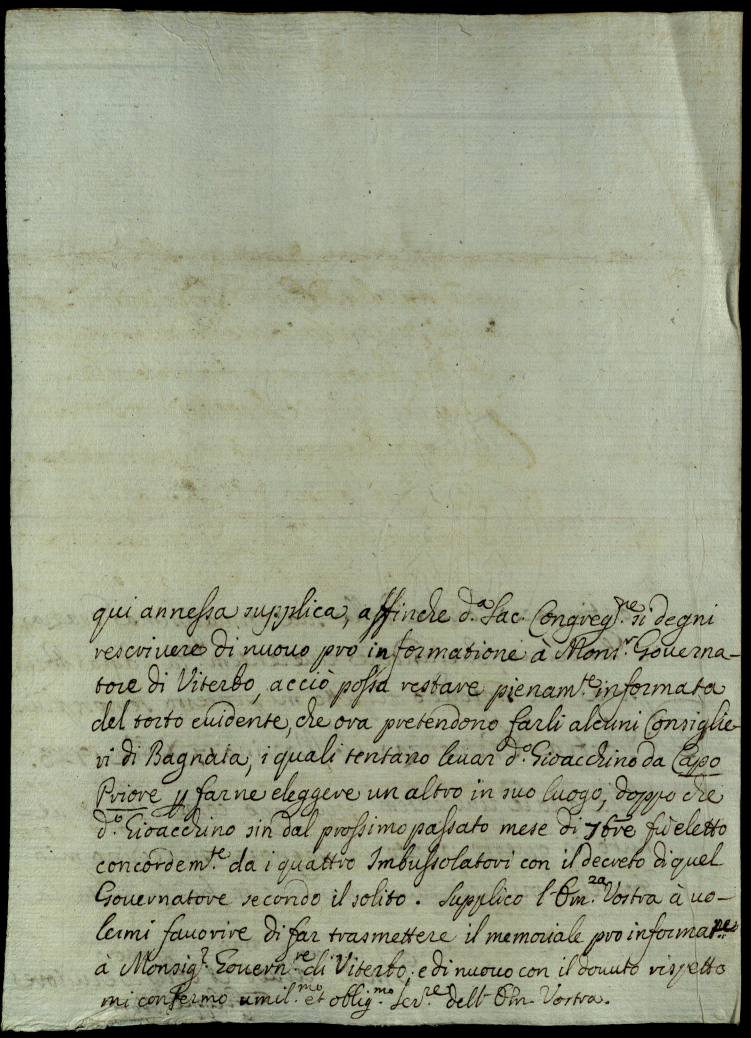 qui annessa supplica, affinche d.ª Sac. Congreg.ne si degni
rescrivere di nuovo pro informatione à Mons.r Governa-
tore di Viterbo, acciò possa restare pienam.te informata
del torto evidente, che ora pretendono farli alcuni Consiglie-
ri di Bagnaia, i quali tentano levar d.º Gioacchino da Capo
Priore p farne eleggere un altro in suo luogo, doppo che
d.º Gioacchino sin dal prossimo passato mese di 7bre fù eletto
concordem.te da i quattro Imbussolatori con il decreto di quel
Governatore secondo il solito. Supplico l'Em.za Vostra à vo-
lermi favorire di far trasmettere il memoriale pro informa.ne
à Monsig.r Govern.re di Viterbo; e di nuovo con il dovuto rispetto
mi confermo umil.mo et oblig.mo Ser.re dell' Em. Vostra.